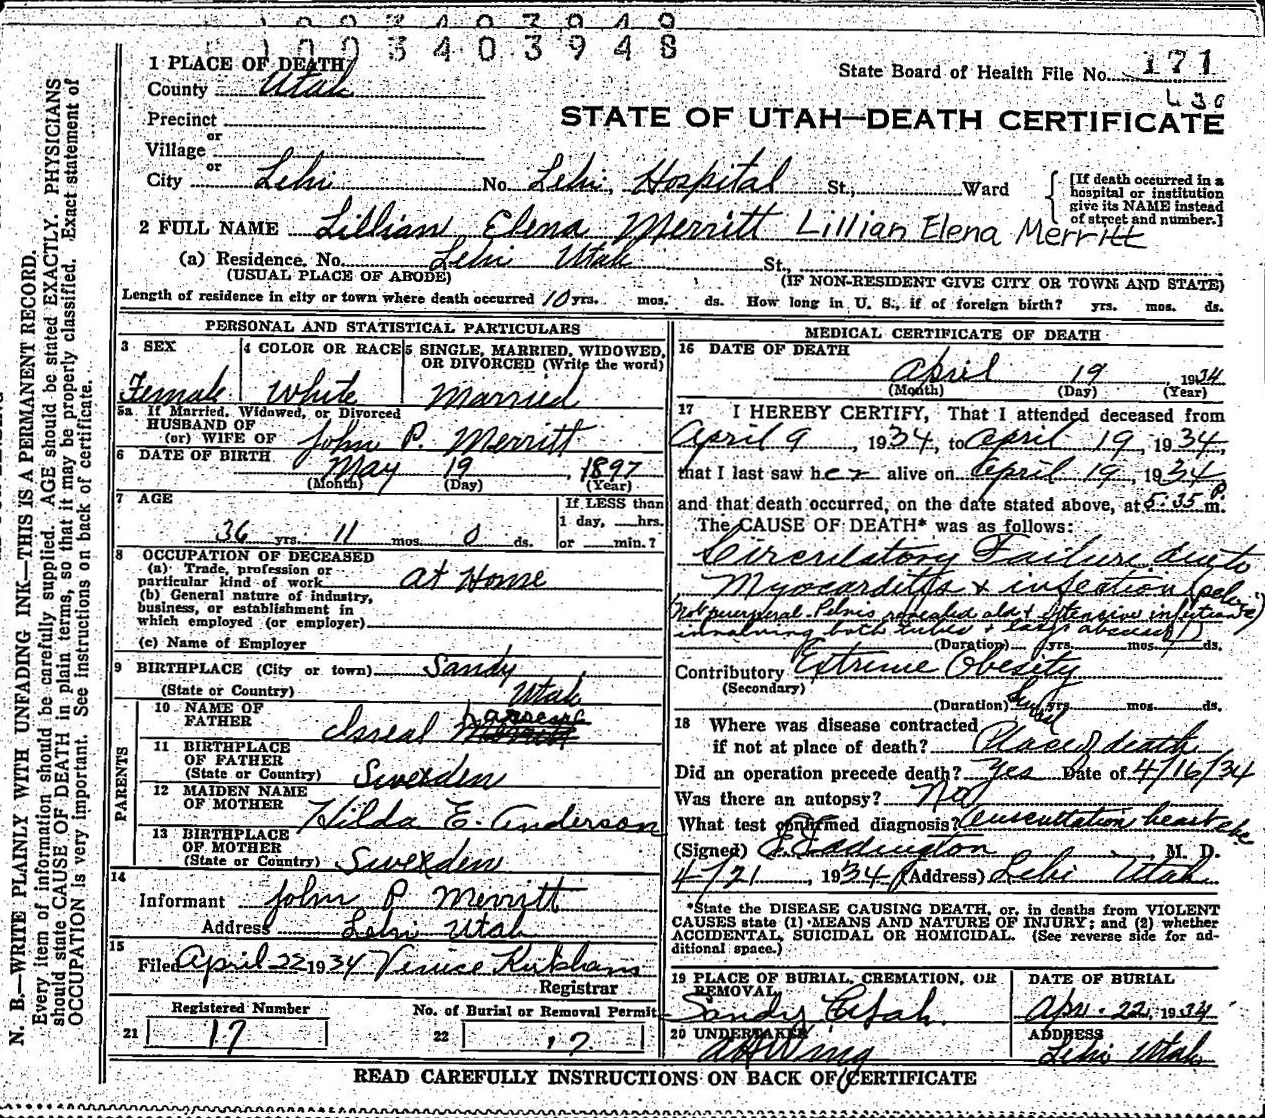 1003403948
1 PLACE OF DEATH
State Board of Health File No. 171
County Utah
430
STATE OF UTAH—DEATH CERTIFICATE
Precinct
or
Village
or
City Lehi No. Lehi, Hospital St., Ward
[If death occurred in a
hospital or institution
give its NAME instead
of street and number.]
2 FULL NAME Lillian Elena Merritt Lillian Elena Merritt
(a) Residence. No. Lehi Utah St.,
(USUAL PLACE OF ABODE) (IF NON-RESIDENT GIVE CITY OR TOWN AND STATE)
Length of residence in city or town where death occurred 10 yrs. mos. ds. How long in U. S., if of foreign birth? yrs. mos. ds.
PERSONAL AND STATISTICAL PARTICULARS
3 SEX
Female
4 COLOR OR RACE
White
5 SINGLE, MARRIED, WIDOWED,
OR DIVORCED (Write the word)
Married
5a If Married, Widowed, or Divorced
HUSBAND OF
(or) WIFE OF John P. Merritt
6 DATE OF BIRTH May 19, 1897
(Month) (Day) (Year)
7 AGE
36 yrs. 11 mos. 0 ds.
If LESS than
1 day, hrs.
or min.?
8 OCCUPATION OF DECEASED
(a) Trade, profession or
particular kind of work at Home
(b) General nature of industry,
business, or establishment in
which employed (or employer)
(c) Name of Employer
9 BIRTHPLACE (City or town) Sandy
(State or Country) Utah
PARENTS
10 NAME OF
FATHER Isreal
11 BIRTHPLACE
OF FATHER
(State or Country) Swexden
12 MAIDEN NAME
OF MOTHER Hilda E. Anderson
13 BIRTHPLACE
OF MOTHER
(State or Country) Swexden
14
Informant John P Merritt
Address Lehi Utah
15
Filed April 22 1934 Venice Kirkham
Registrar
Registered Number
21 17
No. of Burial or Removal Permit
22 17
MEDICAL CERTIFICATE OF DEATH
16 DATE OF DEATH
April 19 1934
(Month) (Day) (Year)
17 I HEREBY CERTIFY, That I attended deceased from
April 9, 1934, to April 19, 1934,
that I last saw her alive on April 19, 1934
and that death occurred, on the date stated above, at 5:35 P. m.
The CAUSE OF DEATH* was as follows:
Circulatory Failure due to
Myocarditis & infection (pelvic)
Not puerperal. Pelvis revealed old & extensive infection
involving both tubes & large abscess
(Duration) yrs. mos. ds.
Contributory Extreme Obesity
(Secondary)
(Duration) yrs. mos. ds.
18 Where was disease contracted
if not at place of death? Place of death
Did an operation precede death? Yes Date of 4/16/34
Was there an autopsy? No
What test confirmed diagnosis? Auscultation heart
(Signed) Eddington M. D.
4/21, 1934 (Address) Lehi Utah
*State the DISEASE CAUSING DEATH, or, in deaths from VIOLENT
CAUSES state (1) MEANS AND NATURE OF INJURY; and (2) whether
ACCIDENTAL, SUICIDAL OR HOMICIDAL. (See reverse side for ad-
ditional space.)
19 PLACE OF BURIAL, CREMATION, OR
REMOVAL
Sandy Utah.
DATE OF BURIAL
Apr. 22, 1934
20 UNDERTAKER
ADDRESS
Lehi Utah
READ CAREFULLY INSTRUCTIONS ON BACK OF CERTIFICATE
N. B.—WRITE PLAINLY WITH UNFADING INK—THIS IS A PERMANENT RECORD.
Every item of information should be carefully supplied. AGE should be stated EXACTLY. PHYSICIANS
should state CAUSE OF DEATH in plain terms, so that it may be properly classified. Exact statement of
OCCUPATION is very important. See instructions on back of certificate.